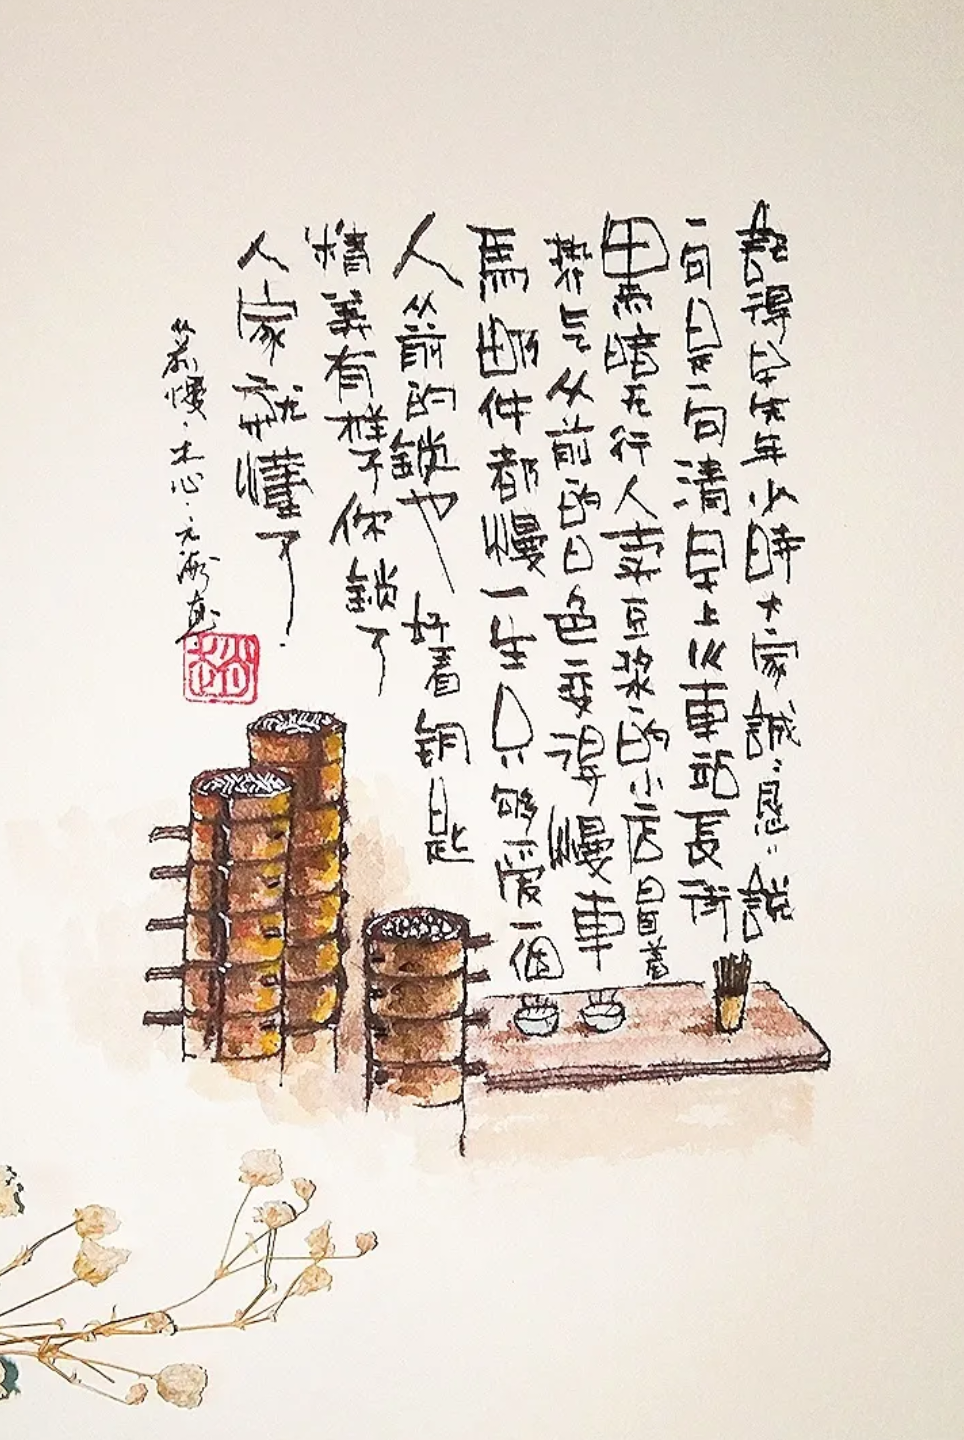 記得早先年少時大家誠誠懇懇說
一句是一句清早上火車站長街
黑暗无行人卖豆浆的小店冒着
热气从前的日色变得慢車
馬邮件都慢一生只够爱一個
人从前的鎖也好看钥匙
精美有樣子你鎖了
人家就懂了
从前慢·木心·元